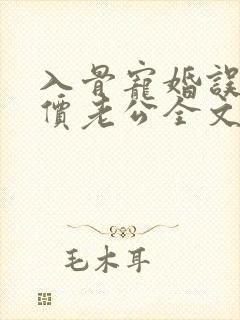 入骨寵婚誤
價老公全文
毛木耳